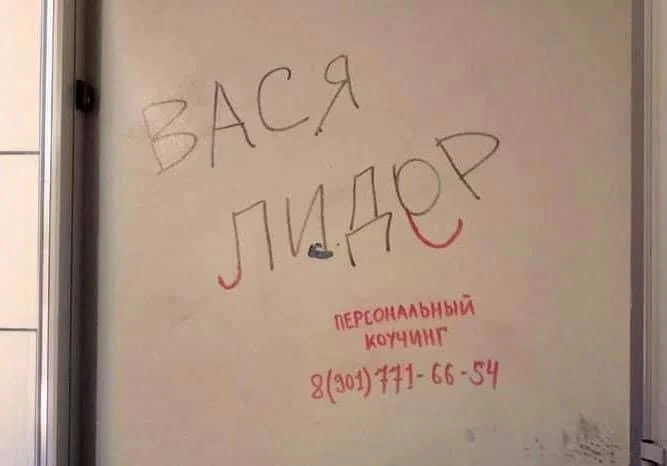 ВАСЯ
ЛИДЕР
ПЕРСОНАЛЬНЫЙ
КОУЧИНГ
8(901)771-66-54